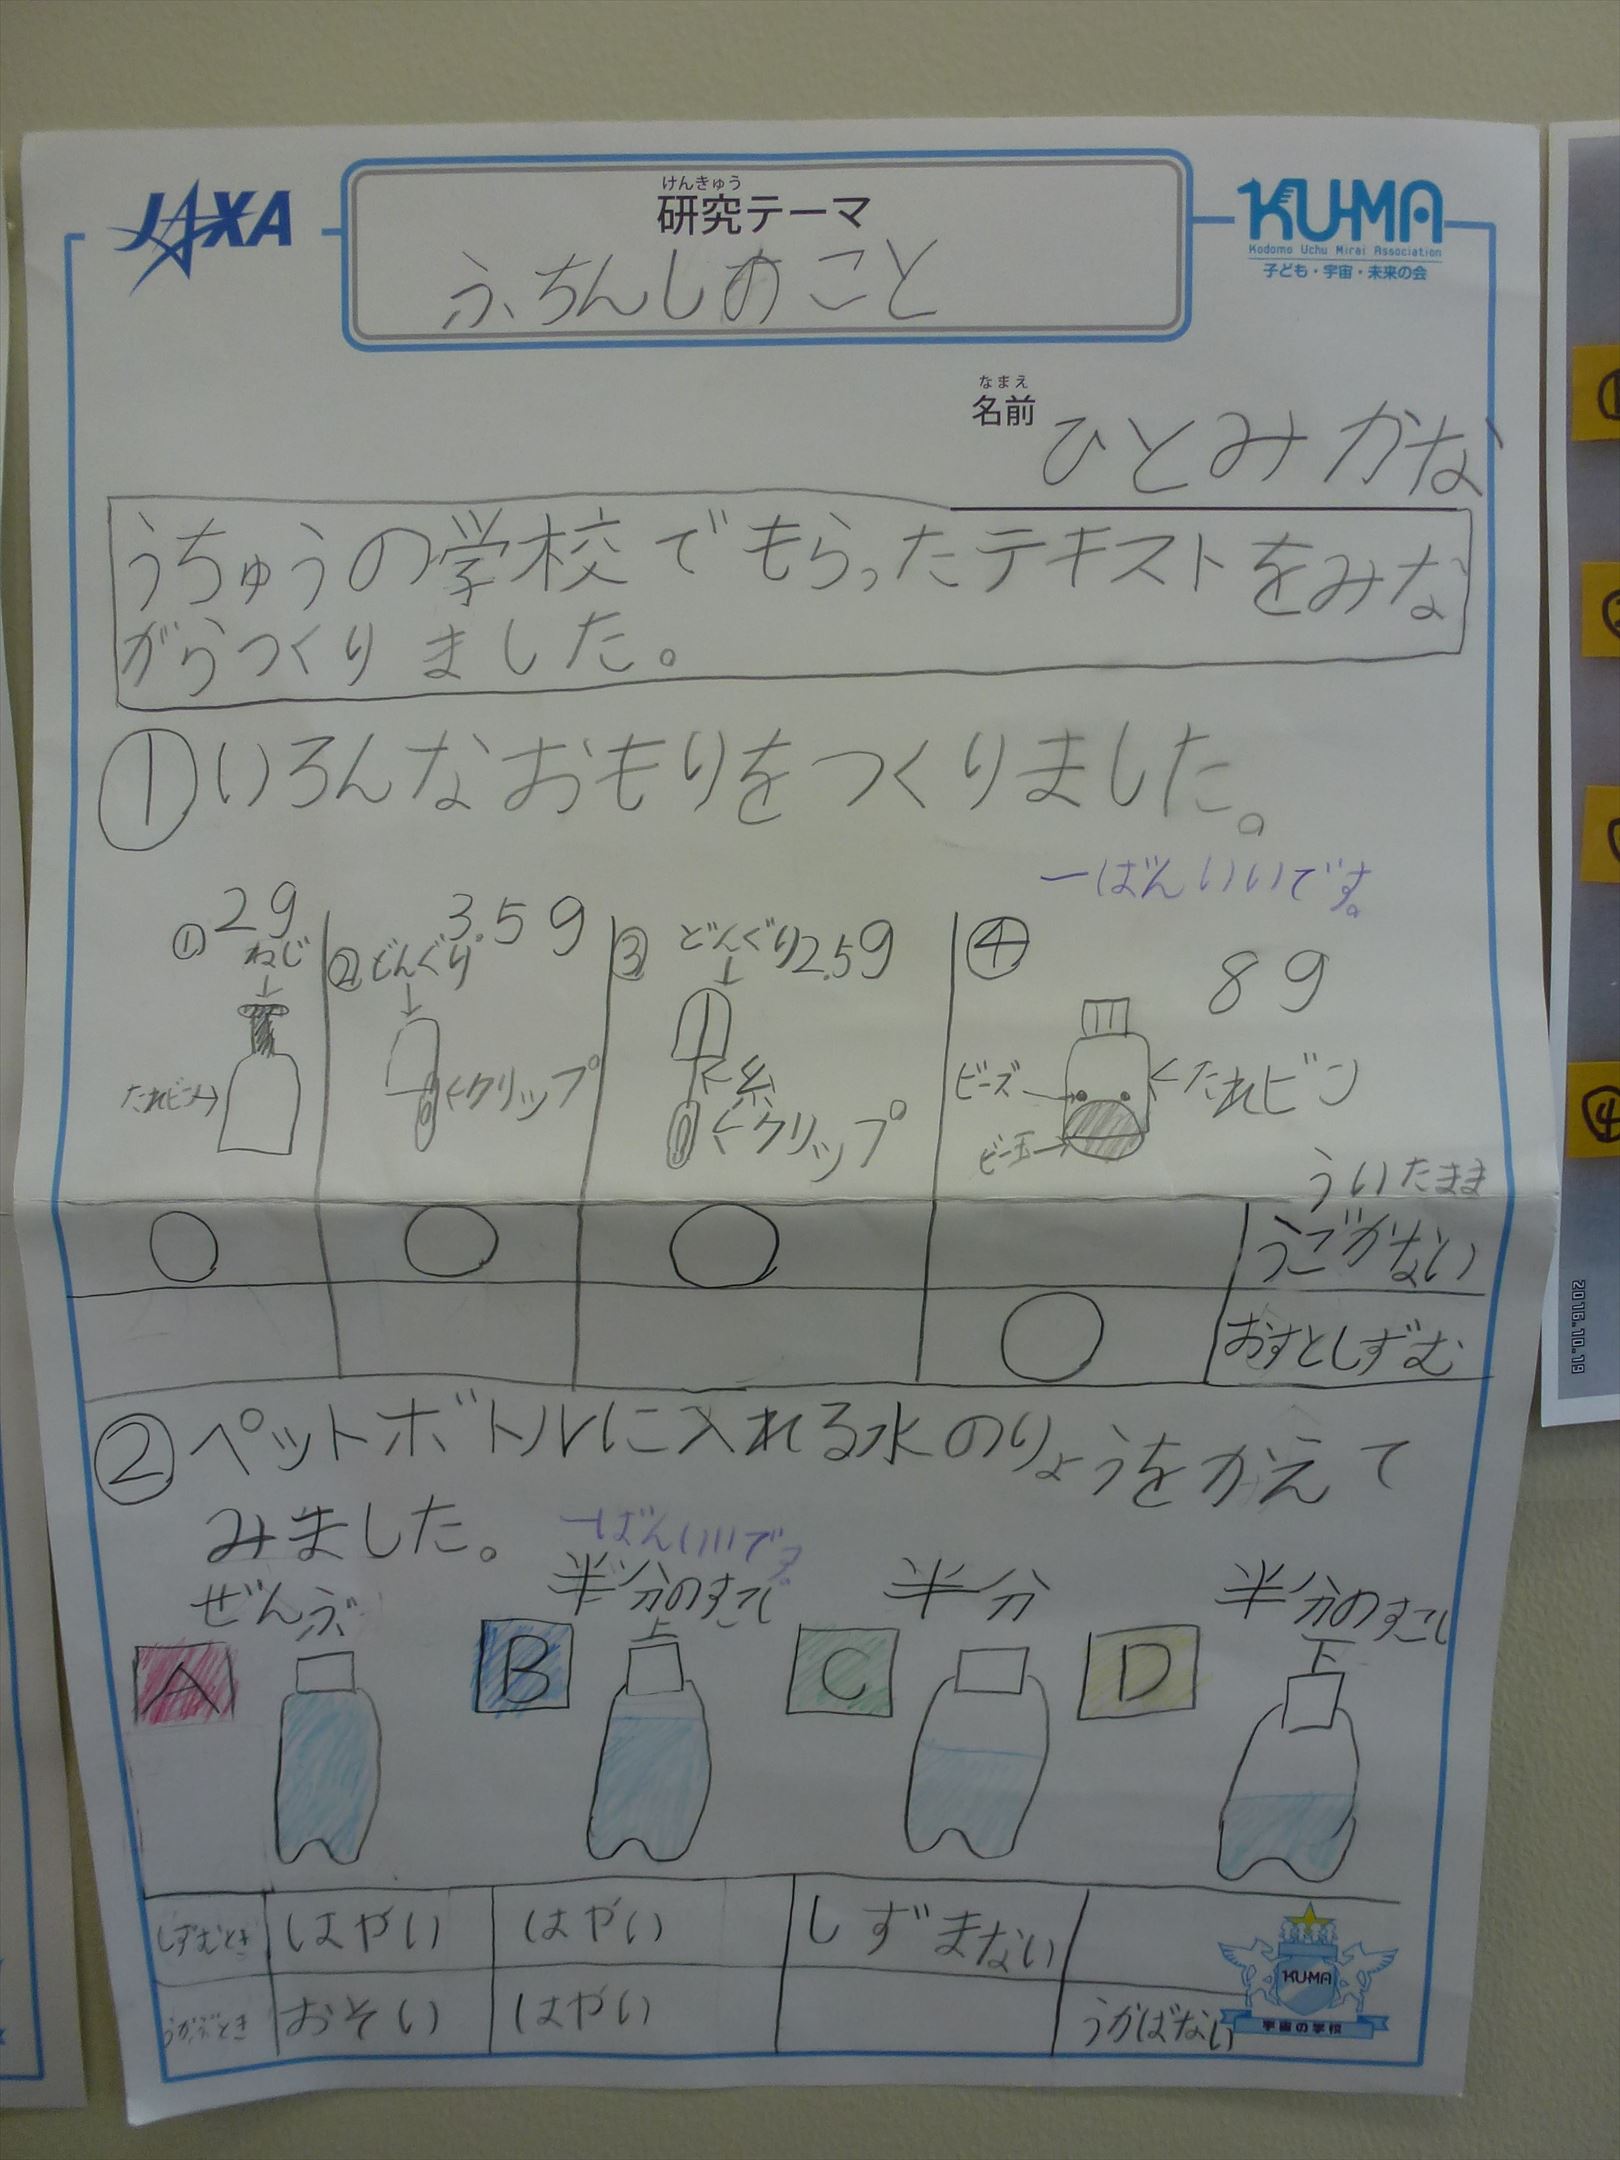 JAXA
けんきゅう
研究テーマ
ふちんしのこと
KU-MA
Kodomo Uchu Mirai Association
子ども・宇宙・未来の会
なまえ
名前
ひとみ かな
うちゅうの学校でもらったテキストをみな
がらつくりました。
①いろんなおもりをつくりました。
一ばんいいです。
① 2g
ねじ
たれビン→
② 3.5g
どんぐり
←クリップ
③ どんぐり 2.5g
←糸
←クリップ
④
8g
ビーズ
←たれビン
ビー玉→
ういたまま
うごかない
おすとしずむ
②ペットボトルに入れる水のりょうをかえて
みました。
一ばんいいです
ぜんぶ
A
半分のすこし
上
B
半分
C
半分のすこし
下
D
しずむとき はやい はやい しずまない
うかぶとき おそい はやい うかばない
KU-MA
宇宙の学校
①
④
2016.10.19